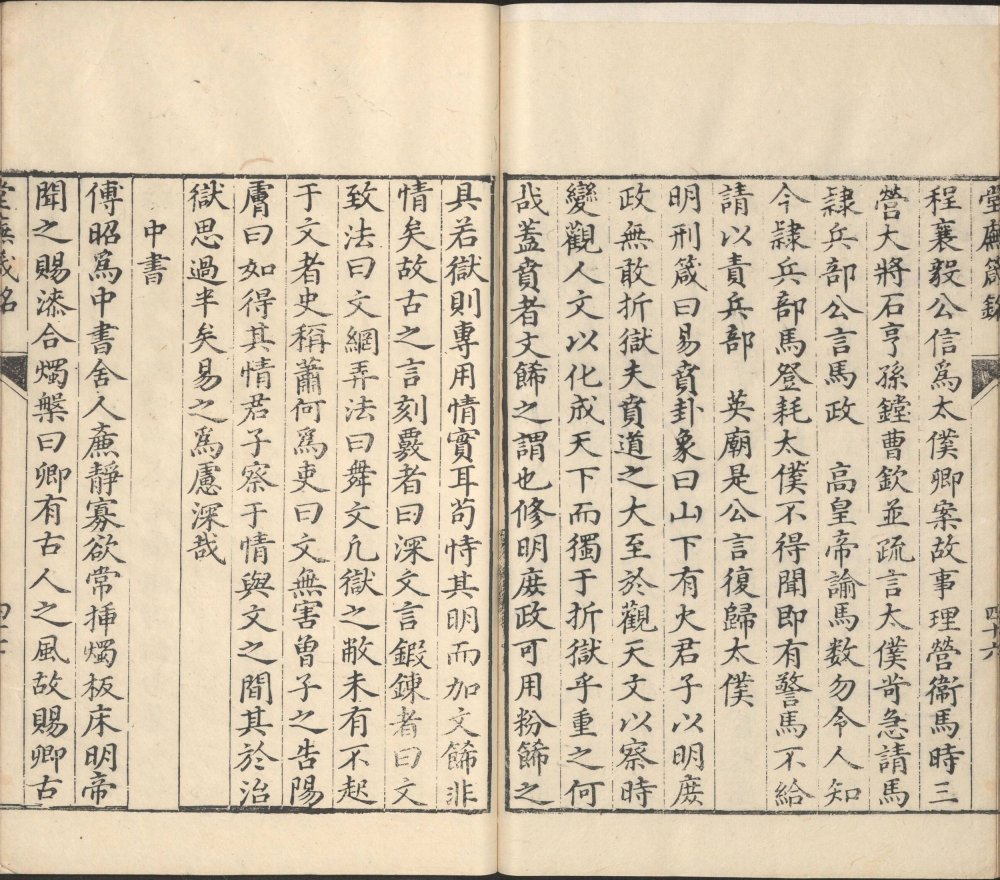 堂廨箴銘
四十六
程襄毅公信爲太僕卿案故事理營衞馬時三
營大將石亨孫鏜曹欽並疏言太僕苛急請馬
隸兵部公言馬政 高皇帝諭馬数勿令人知
今隸兵部馬登耗太僕不得聞即有警馬不給
請以責兵部 英廟是公言復歸太僕
明刑箴曰易賁卦象曰山下有火君子以明庶
政無敢折獄夫賁道之大至於觀天文以察時
變觀人文以化成天下而獨于折獄乎重之何
哉葢賁者文餙之謂也修明庶政可用粉餙之
具若獄則專用情實耳苟恃其明而加文餙非
情矣故古之言刻覈者曰深文言鍛鍊者曰文
致法曰文網弄法曰舞文凢獄之敝未有不起
于文者史稱蕭何爲吏曰文無害曾子之告陽
膚曰如得其情君子察于情與文之間其於治
獄思過半矣易之爲慮深哉
中書
傅昭爲中書舍人亷靜寡欲常揷燭板床明帝
聞之賜漆合燭槃曰卿有古人之風故賜卿古